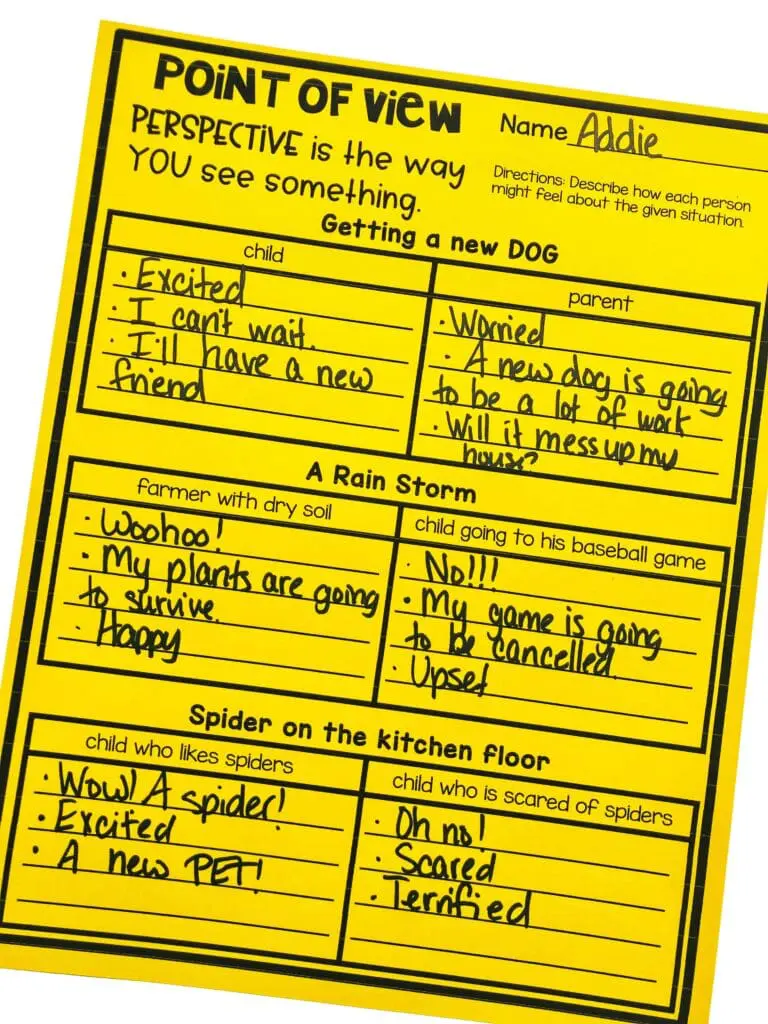 POINT OF VIEW
Name Addie
PERSPECTIVE is the way
YOU see something.
Directions: Describe how each person
might feel about the given situation.
Getting a new DOG
child
• Excited
• I can't wait.
• I'll have a new
friend
parent
• Worried
• A new dog is going
to be a lot of work
• Will it mess up my
house?
A Rain Storm
farmer with dry soil
• Woohoo!
• My plants are going
to survive.
• Happy
child going to his baseball game
• No!!!
• My game is going
to be cancelled.
• Upset
Spider on the kitchen floor
child who likes spiders
• Wow! A spider!
• Excited
• A new PET!
child who is scared of spiders
• Oh no!
• Scared
• Terrified